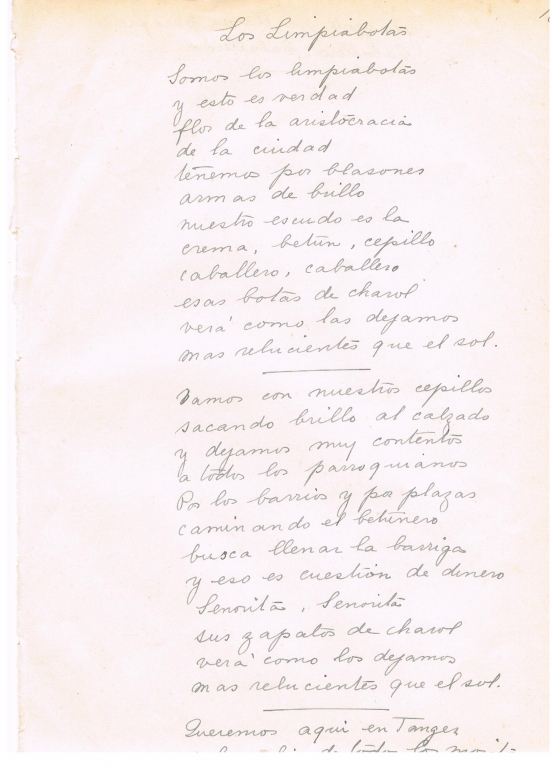 Los Limpiabotas
Somos los limpiabotas
y esto es verdad
flor de la aristocracia
de la ciudad
tenemos por blasones
armas de brillo
nuestro escudo es la
crema, betún, cepillo
caballero, caballero
esas botas de charol
verá como las dejamos
mas relucientes que el sol.
Vamos con nuestros cepillos
sacando brillo al calzado
y dejamos muy contentos
a todos los parroquianos
Por los barrios y por plazas
caminando el betunero
busca llenar la barriga
y eso es cuestión de dinero
Señorita, Señorita
sus zapatos de charol
verá como los dejamos
mas relucientes que el sol.
Queremos aqui en Tanger
de todos los